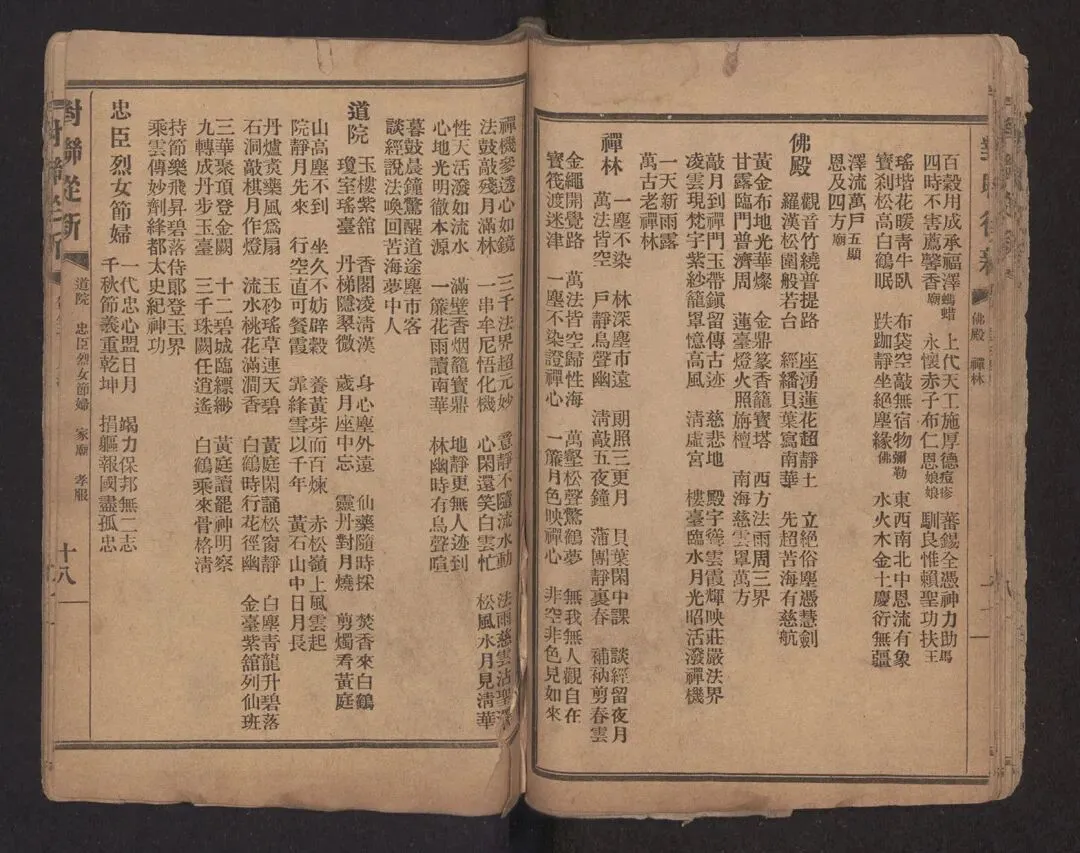 佛殿 禪林
百穀用成承福澤 上代天工施厚德 蕃錫全憑神力助馬
四時不害薦馨香廟 永懷赤子布仁恩娘娘 馴良惟賴聖功扶王
瑤堦花暖靑牛臥 布袋空敲無宿物彌勒 東西南北中恩流有象
寳刹松高白鶴眠 趺跏靜坐絕塵緣佛 水火木金土慶衍無疆
澤流萬戸五顯
恩及四方廟
佛殿 觀音竹繞普提路 座湧蓮花超靜土 立絕俗塵憑慧劍
羅漢松圍般若台 經繙貝葉寫南華 先超苦海有慈航
黃金布地光華燦 金鼎篆香籠寳塔 西方法雨周三界
甘露臨門普濟周 蓮臺燈火照旃檀 南海慈雲罩萬方
敲月到禪門玉帶鎭留傳古迹 慈悲地 殿宇聳雲霞輝映莊嚴法界
凌雲現梵宇紫紗籠罩憶高風 淸虛宮 樓臺臨水月光昭活潑禪機
一天新雨露
萬古老禪林
禪林 一塵不染 林深塵市遠 朗照三更月 貝葉閑中課 談經留夜月
萬法皆空 戸靜鳥聲幽 淸敲五夜鐘 蒲團靜裏春 補衲剪春雲
金繩開覺路 萬法皆空歸性海 萬壑松聲驚鶴夢 無我無人觀自在
寳筏渡迷津 一塵不染證禪心 一簾月色映禪心 非空非色見如來
禪機參透心如鏡 三千法界超元妙 意靜不隨流水動 法雨慈雲沾聖澤
法鼓敲殘月滿林 一串牟尼悟化機 心閑還笑白雲忙 松風水月見淸華
性天活潑如流水 滿壁香烟籠寳鼎 地靜更無人迹到
心地光明徹本源 一簾花雨讀南華 林幽時有鳥聲喧
暮鼓晨鐘驚醒道途塵市客
談經說法喚回苦海夢中人
道院 玉樓紫舘 香閣凌淸漢 身心塵外遠 仙藥隨時採 焚香來白鶴
瓊室瑤臺 丹梯隱翠微 歲月座中忘 靈丹對月燒 剪燭看黃庭
山高塵不到 坐久不妨辟穀 養黃芽而百煉 赤松嶺上風雲起
院靜月先來 行空直可餐霞 霏絳雪以千年 黃石山中日月長
丹爐煮藥風爲扇 玉砂瑤草連天碧 黃庭閑誦松窗靜 白塵靑龍升碧落
石洞敲棋月作燈 流水桃花滿澗香 白鶴時行花徑幽 金臺紫舘列仙班
三華聚頂登金闕 十二碧城臨縹緲 黃庭讀罷神明察
九轉成丹步玉臺 三千珠闕任逍遙 白鶴乘來骨格淸
持節樂飛昇碧落侍郞登玉界
乘雲傳妙劑絳都太史紀神功
忠臣烈女節婦 一代忠心盟日月 竭力保邦無二志
千秋節義重乾坤 捐軀報國盡孤忠
對聯從新 道院 忠臣烈女節婦 家廟 孝服 十八